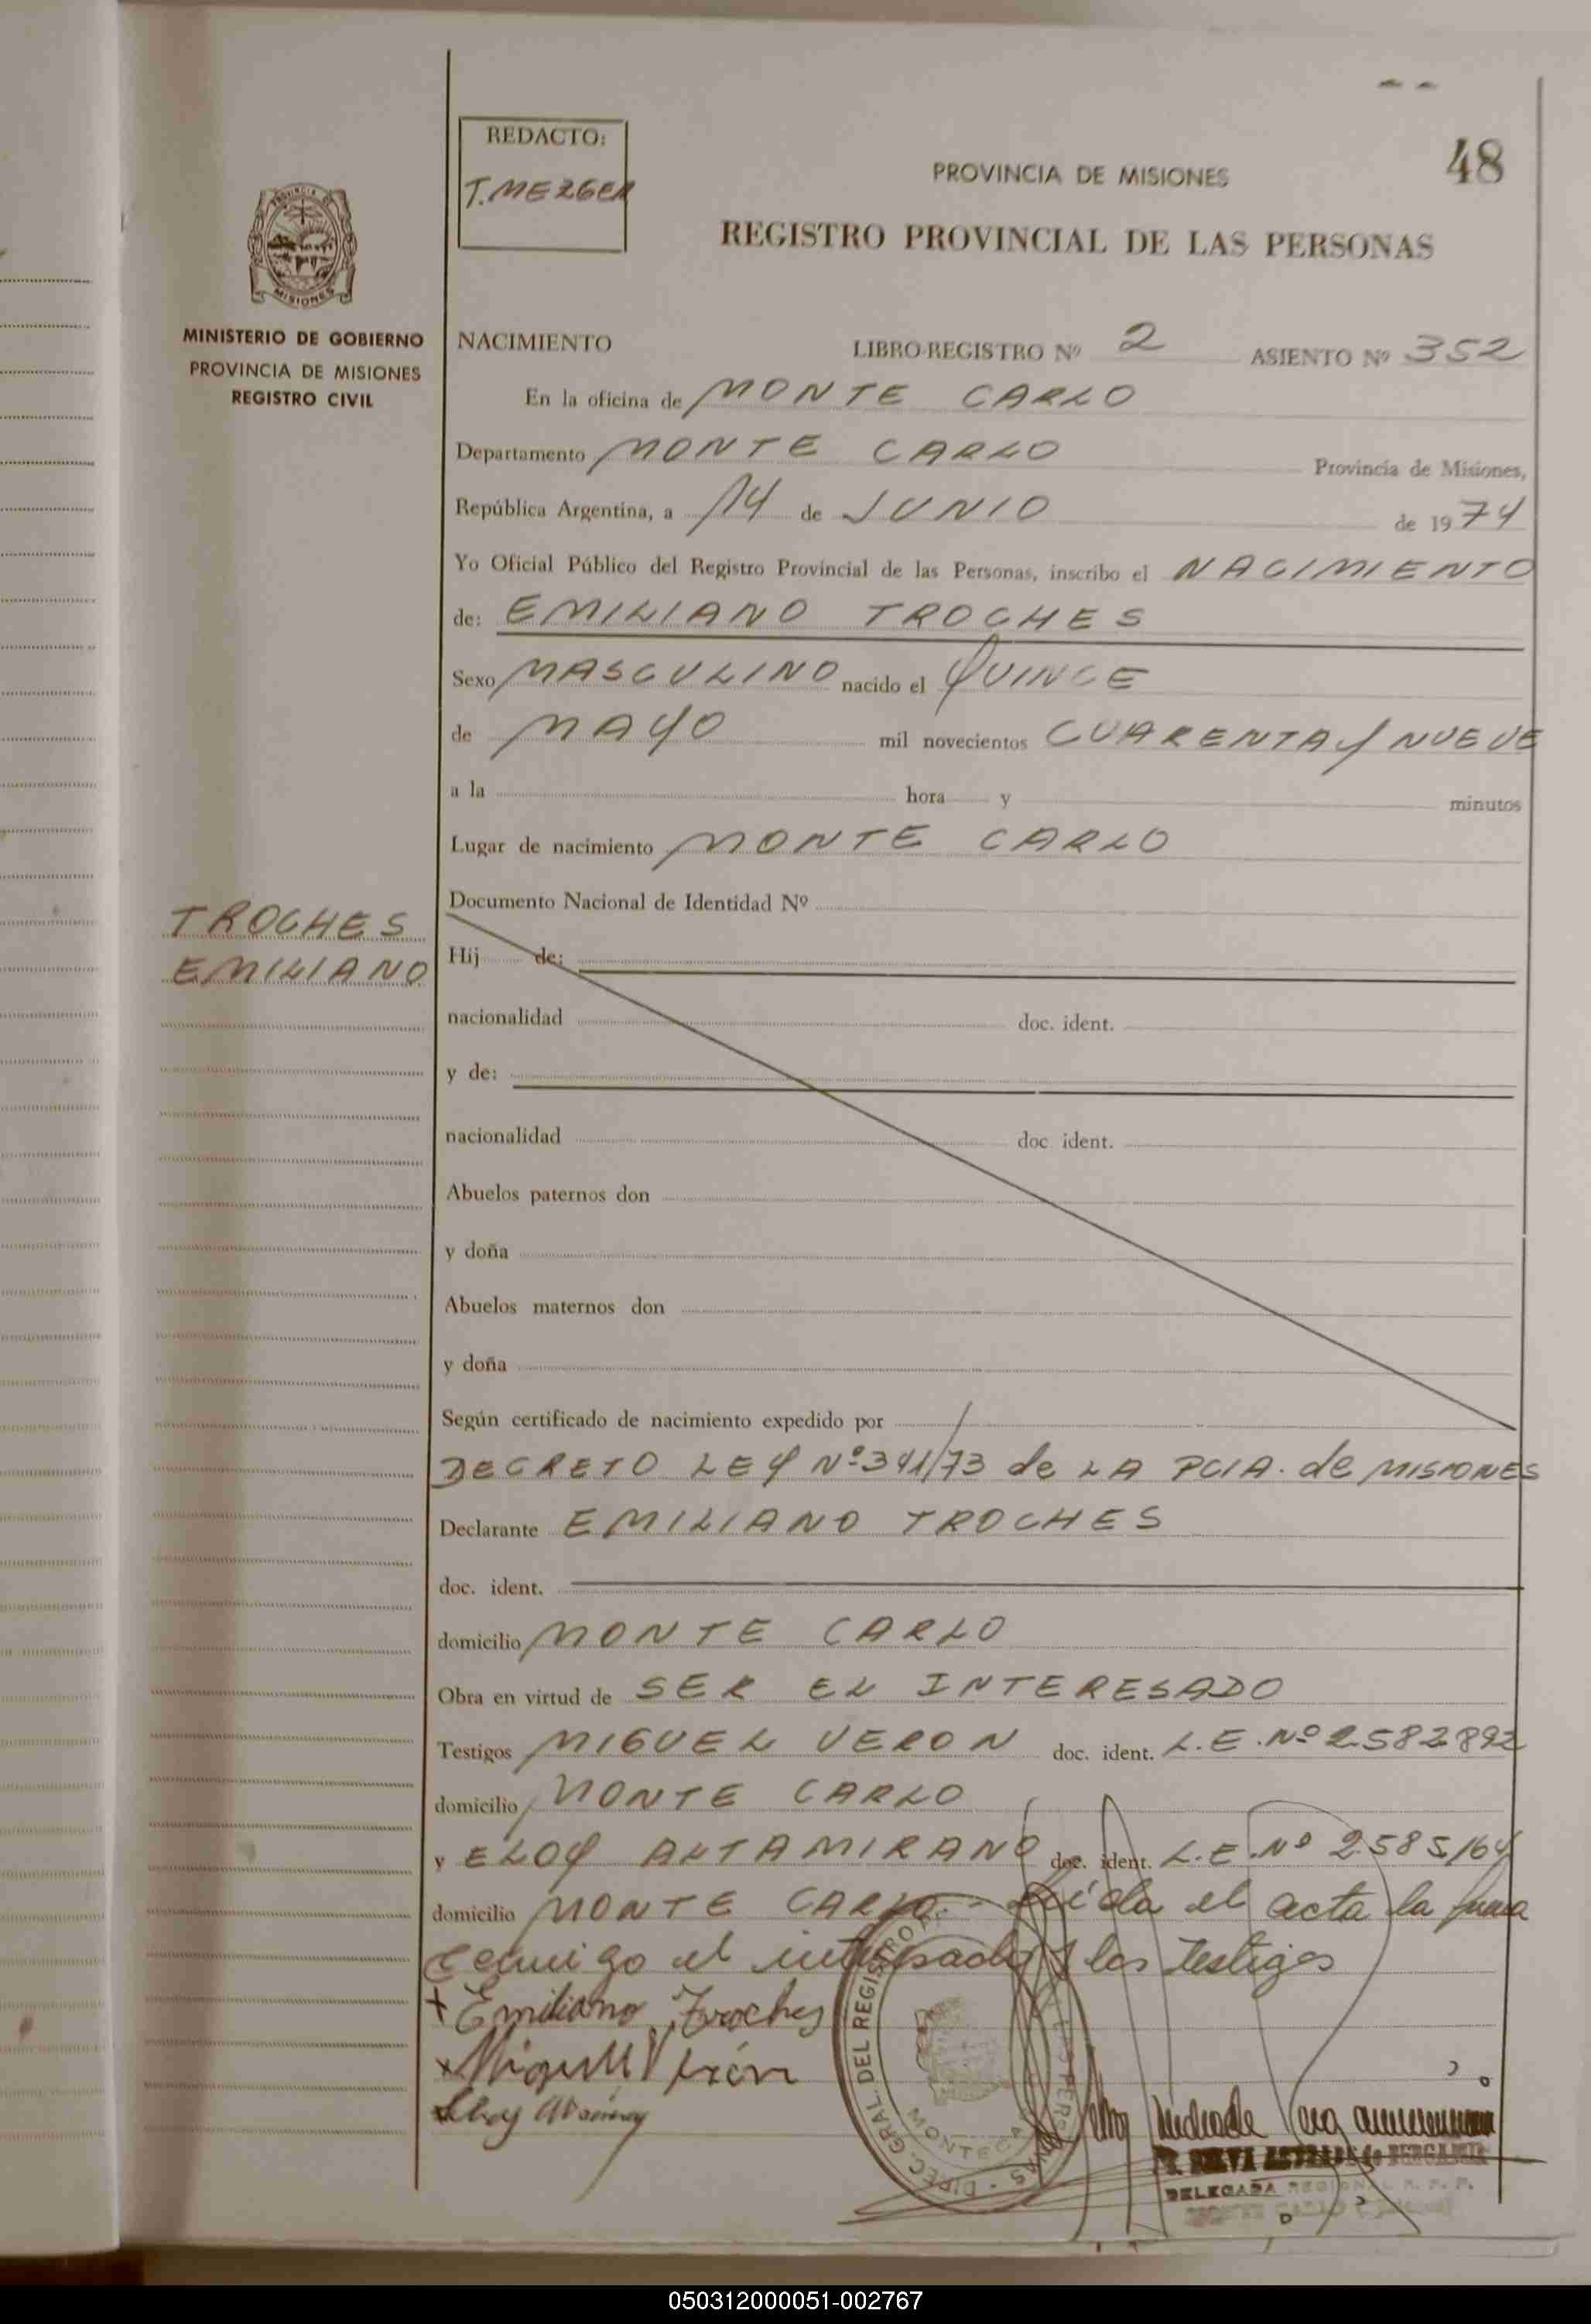 REDACTO:
T. MEZGER
48
PROVINCIA DE MISIONES
REGISTRO PROVINCIAL DE LAS PERSONAS
MISIONES
MINISTERIO DE GOBIERNO
PROVINCIA DE MISIONES
REGISTRO CIVIL
NACIMIENTO LIBRO-REGISTRO Nº 2 ASIENTO Nº 352
En la oficina de MONTE CARLO
Departamento MONTE CARLO Provincia de Misiones,
República Argentina, a 14 de JUNIO de 1974
Yo Oficial Público del Registro Provincial de las Personas, inscribo el NACIMIENTO
de: EMILIANO TROCHES
Sexo MASCULINO nacido el QUINCE
de MAYO mil novecientos CUARENTA y NUEVE
a la hora y minutos
Lugar de nacimiento MONTE CARLO
Documento Nacional de Identidad Nº
TROCHES
EMILIANO
Hij de:
nacionalidad doc. ident.
y de:
nacionalidad doc ident.
Abuelos paternos don
y doña
Abuelos maternos don
y doña
Según certificado de nacimiento expedido por
DECRETO LEY Nº 341/73 de LA PCIA. de MISIONES
Declarante EMILIANO TROCHES
doc. ident.
domicilio MONTE CARLO
Obra en virtud de SER EL INTERESADO
Testigos MIGUEL VERON doc. ident. L.E. Nº 2582892
domicilio MONTE CARLO
y ELOY ALTAMIRANO doc. ident. L.E. Nº 2585164
domicilio MONTE CARLO.- Leída el acta la firma
conmigo el interesado y los testigos
+ Emiliano Troches
x Miguel Verón
DIREC. GRAL. DEL REGISTRO
PERSONAS
MONTECARLO
DELEGADA REGIONAL R. P. P.
050312000051-002767